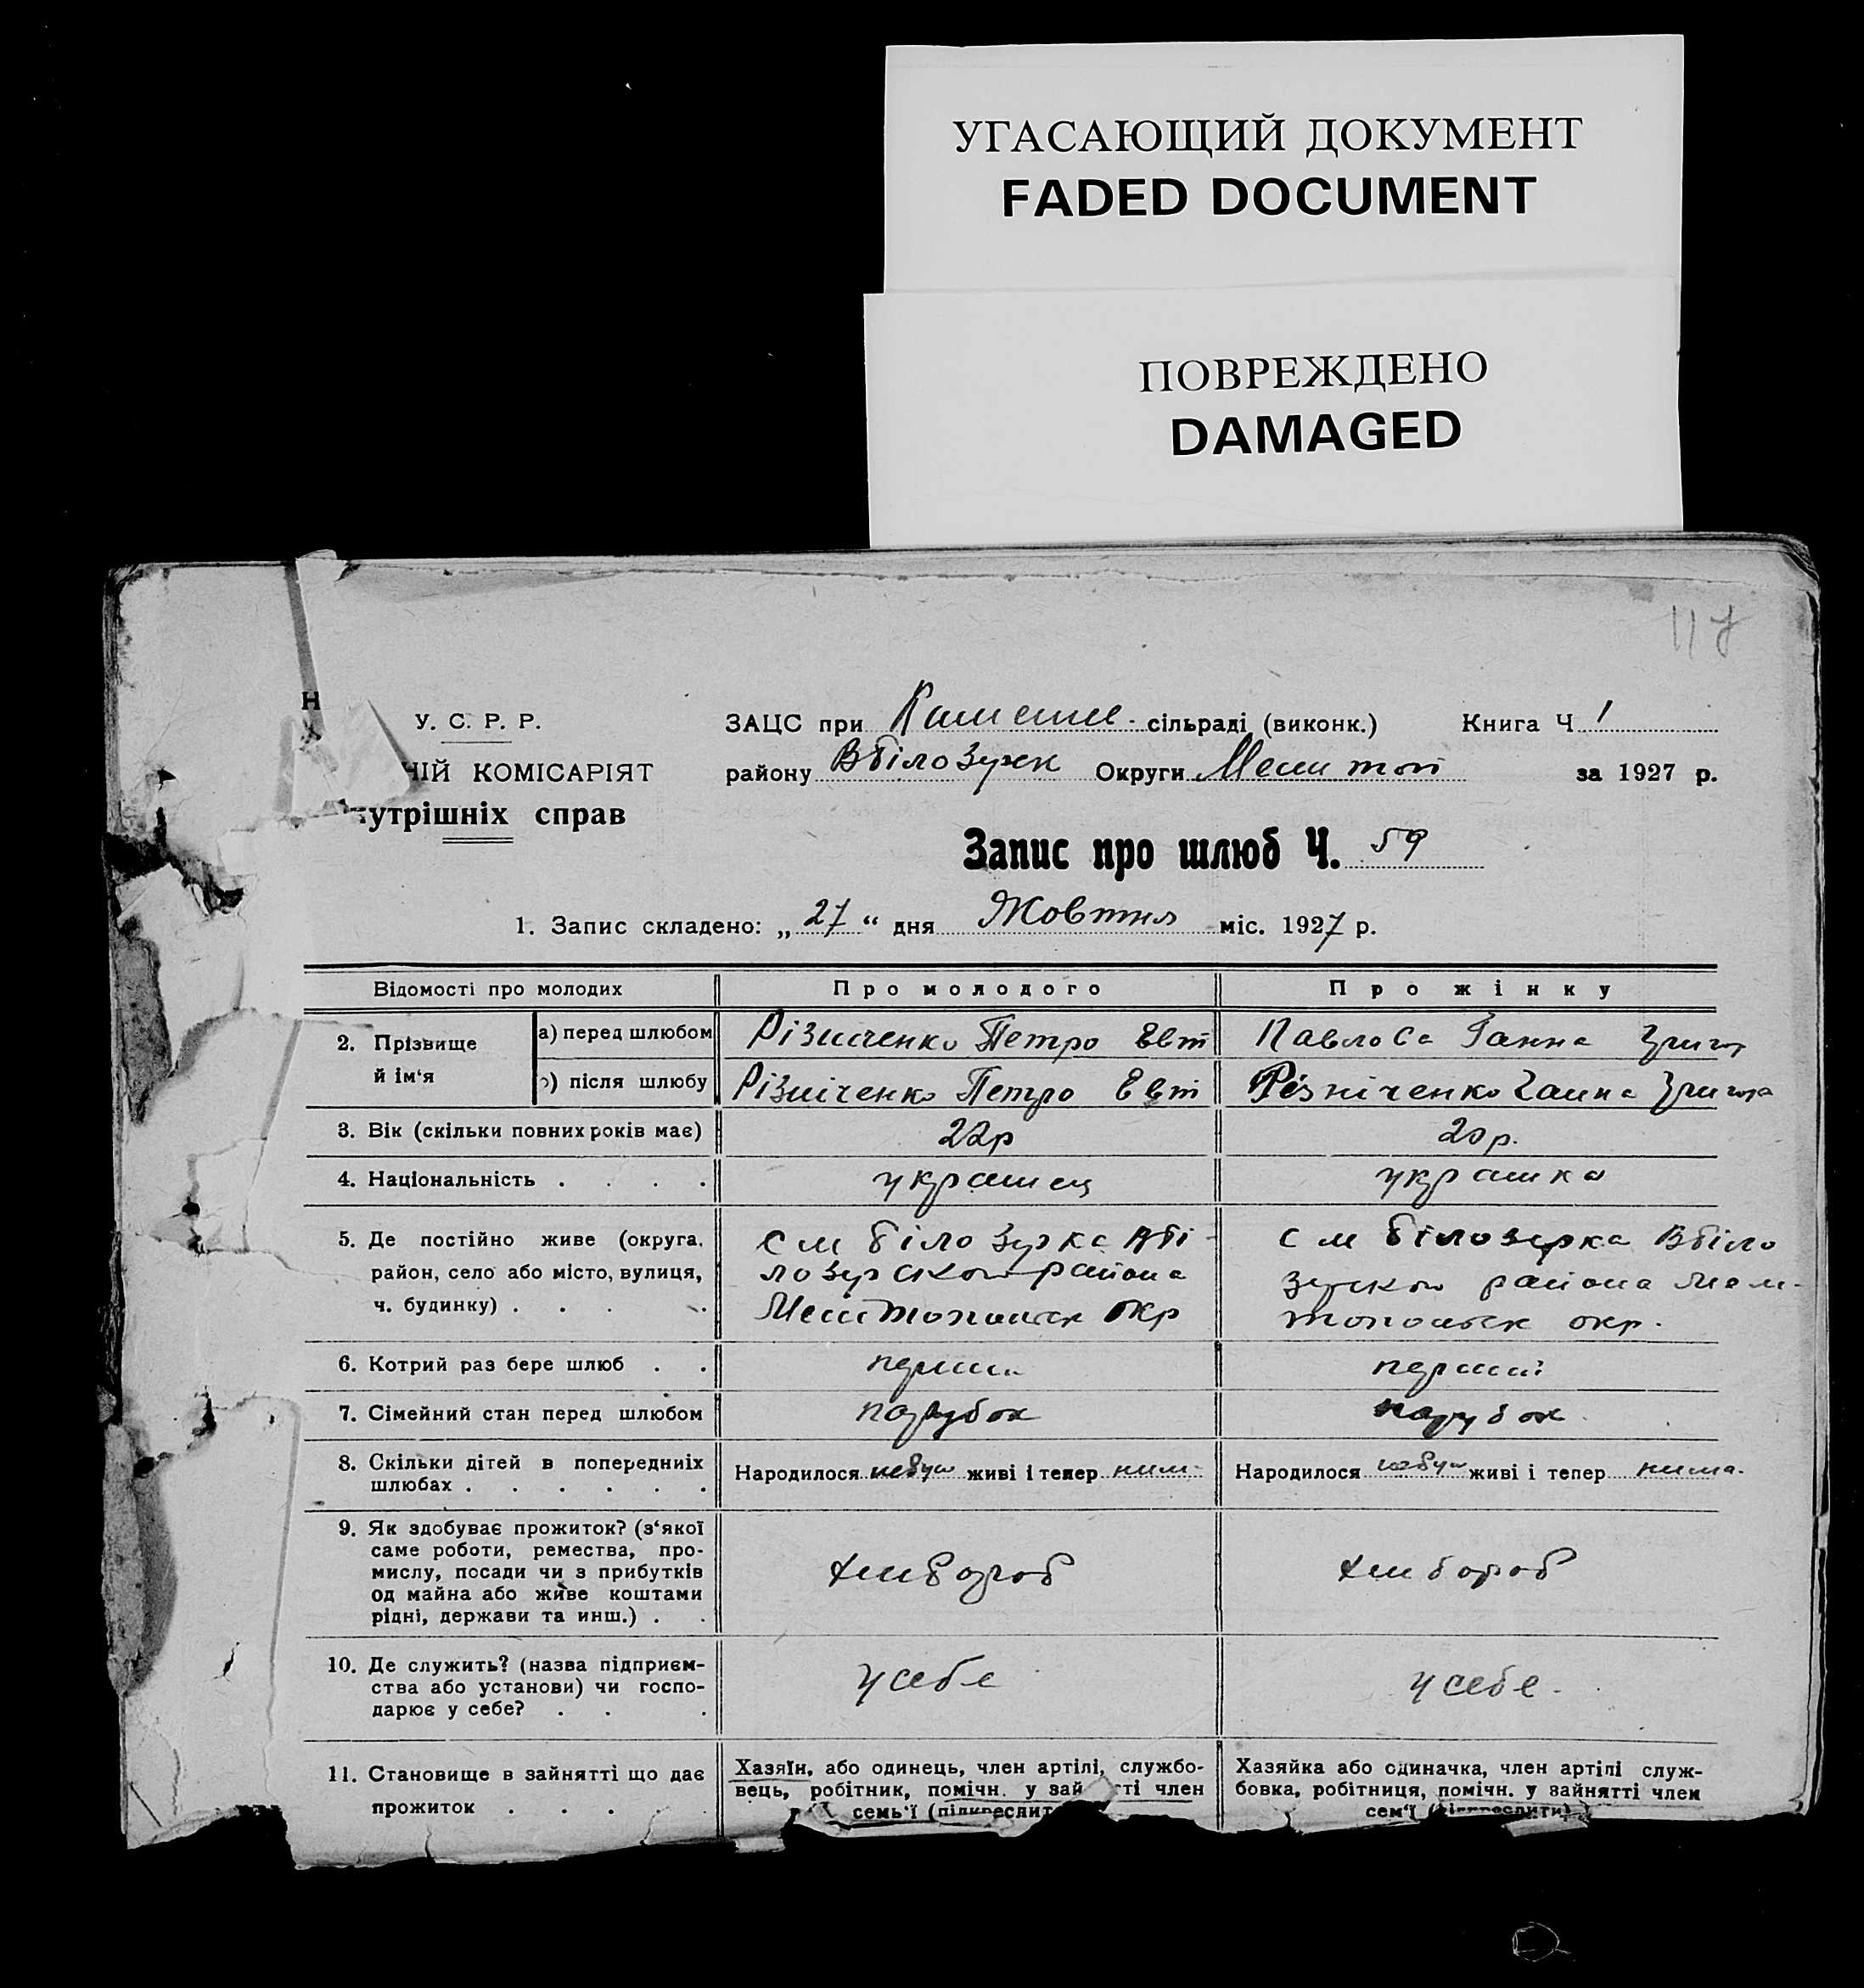 УГАСАЮЩИЙ ДОКУМЕНТ
FADED DOCUMENT
ПОВРЕЖДЕНО
DAMAGED
117
Н
У. С. Р. Р.
НІЙ КОМІСАРІЯТ
утрішніх справ
ЗАЦС при сільраді (виконк.) Книга Ч 1
району Вбілозурк Округи за 1927 р.
Запис про шлюб Ч. 59
1. Запис складено: „27“ дня Жовтня міс. 1927 р.
Відомості про молодих
Про молодого
Про жінку
2. Прізвище й ім‘я
а) перед шлюбом
Різниченко Петро Евт
Ганна Григор
) після шлюбу
Різніченко Петро Евт
Різніченко Ганна Григора
3. Вік (скільки повних років має)
22р
20р.
4. Національність . . . .
украинец
украинка
5. Де постійно живе (округа,
район, село або місто, вулиця,
ч. будинку) . . . .
см білозурка Вбі-
лозурского района
окр
см білозурка Вбіло
зурского района Мели-
окр.
6. Котрий раз бере шлюб . .
перший
перший
7. Сімейний стан перед шлюбом
парубок
парубок
8. Скільки дітей в попередниіх
шлюбах . . . . . .
Народилося небуло живі і тепер нима
Народилося небуло живі і тепер нима.
9. Як здобуває прожиток? (з‘якої
саме роботи, ремества, про-
мислу, посади чи з прибутків
од майна або живе коштами
рідні, держави та инш.) . .
хлибороб
хлибороб
10. Де служить? (назва підприєм-
ства або установи) чи госпо-
дарює у себе? . . .
у себе
у себе.
11. Становище в зайнятті що дає
прожиток . . . . .
Хазяїн, або одинець, член артілі, службо-
вець, робітник, помічн. у зай ті член
семь‘ї (підкреслит
Хазяйка або одиначка, член артілі служ-
бовка, робітниця, помічн. у зайнятті член
сем‘ї (підкреслити)